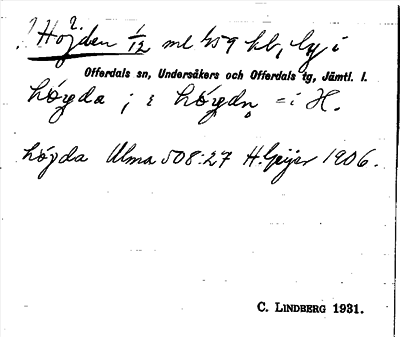 ? Höjden 1/12 ml 459 hb, by i
Offerdals sn, Undersåkers och Offerdals tg, Jämtl. l.
hö́gda ; i hö́gdn̥ = i H.
hö́gda Ulma 508:27 H. Geijer 1906.
C. LINDBERG 1931.